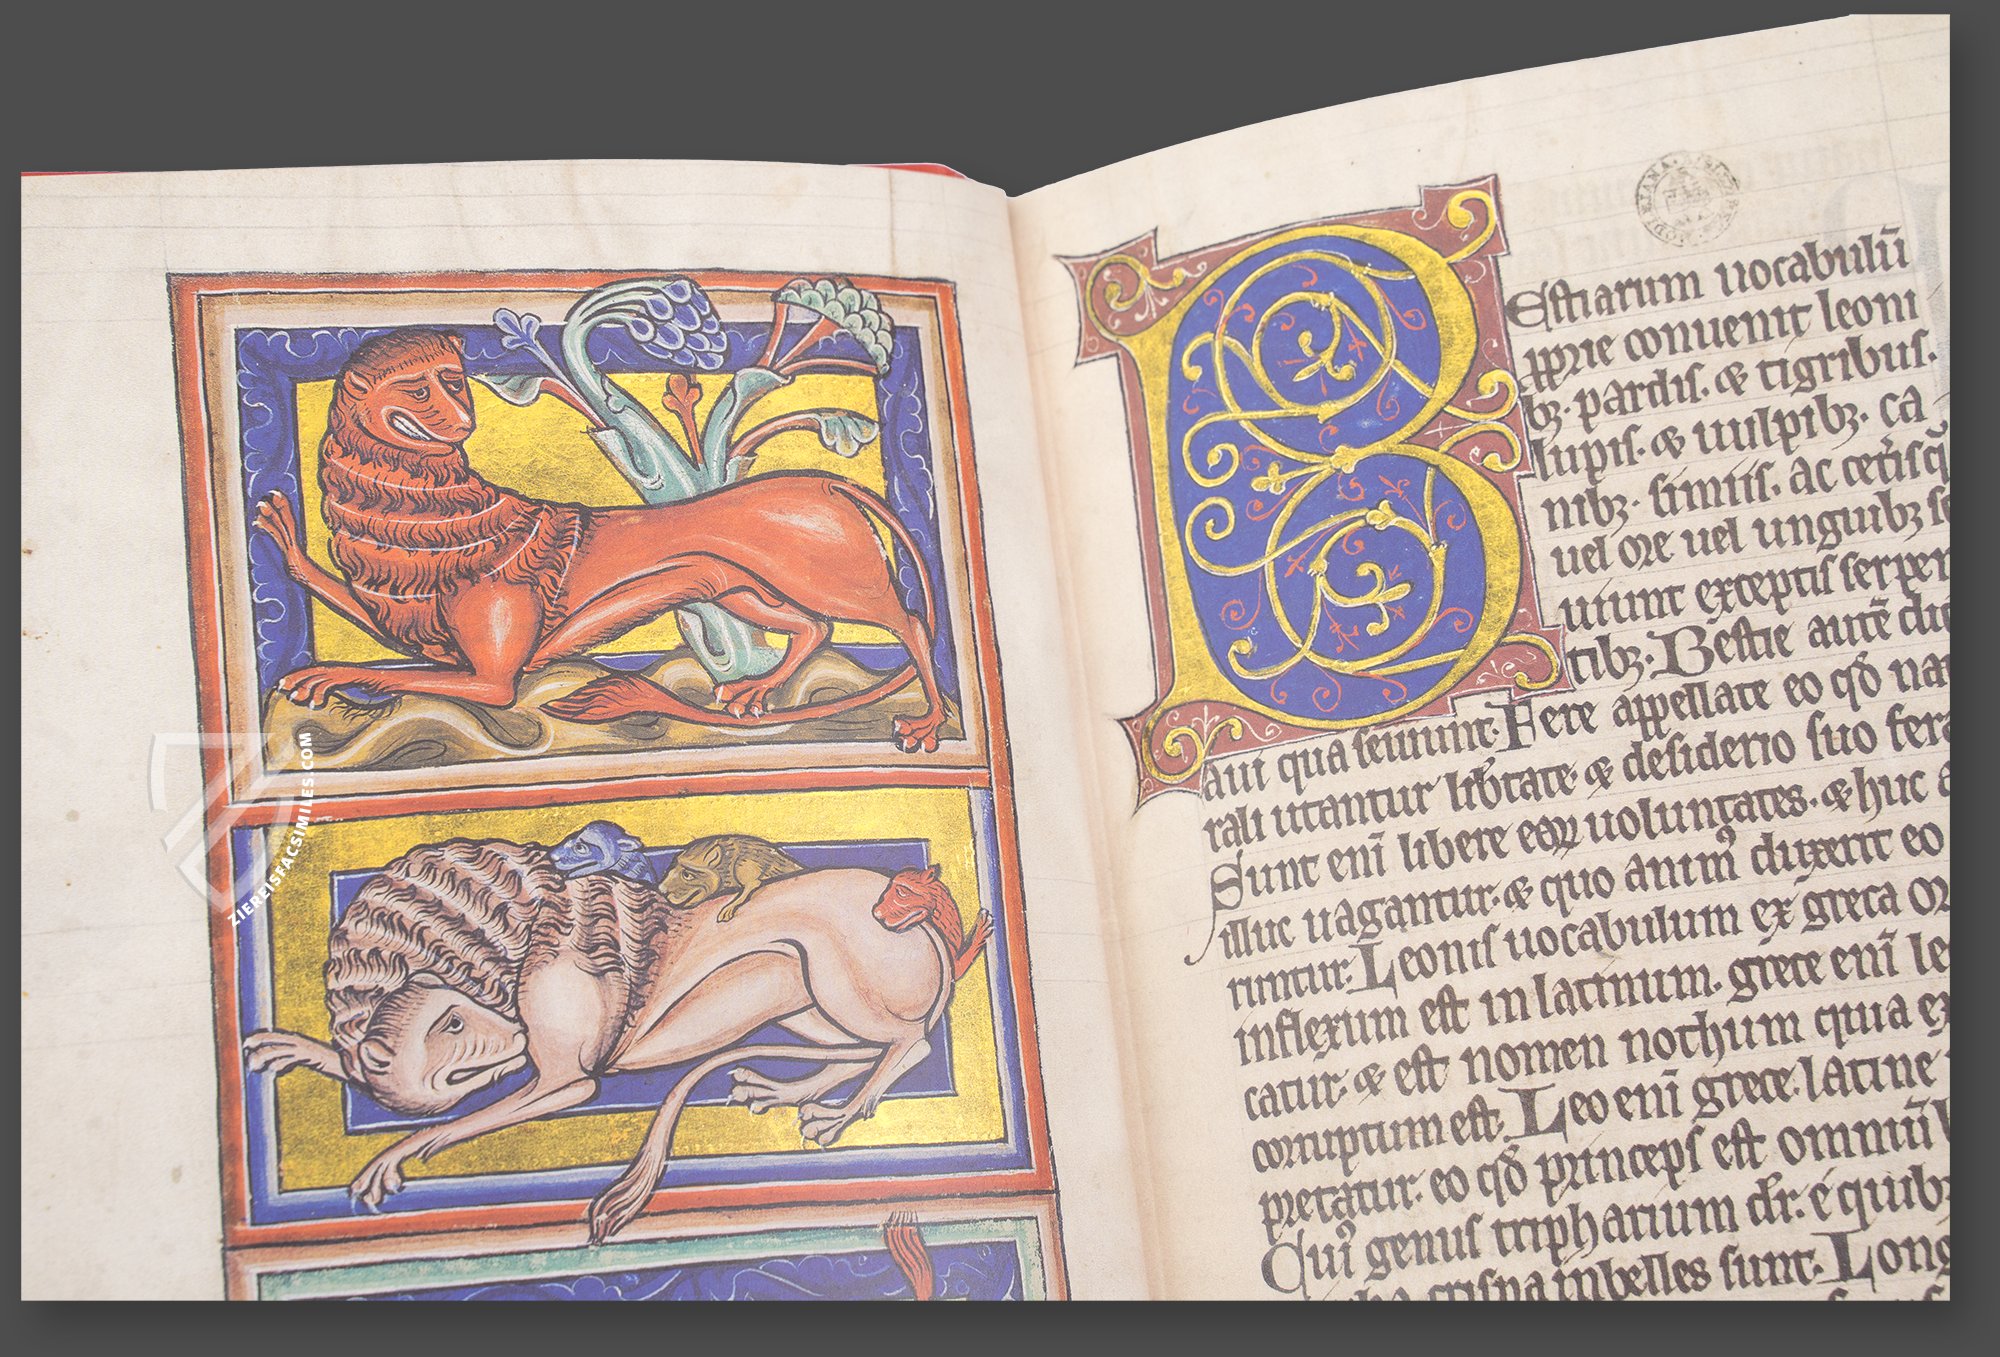 ZIEREISFACSIMILES.COM
BODLEIANA
B
Estiarum uocabulū
pprie conuenit leoni
bꝫ· pardis· & tigribus·
lupis· & uulpibꝫ· ca
nibꝫ· simiis· ac cet̄is q̄
uel ore uel unguibꝫ
uiunt exceptis
tibꝫ· Bestie autē
aui qua seuiunt· Fere appellate eo qđ
rali utantur lib̄tate· & desiderio suo
Sunt enī libere eoꝝ uoluntates· & huc
illuc uagantur· & quo animꝰ duxerit eo
runtur· Leonis uocabulum ex greca
inflexum est in latinum· grece enī
catur· & est nomen nothum quia
corruptum est· Leo enī grece· latine
pretatur· eo qđ princeps est omniū
Cuiꝰ genus tripharium dr̄· ē quibꝫ
crispa inbelles sunt· Long